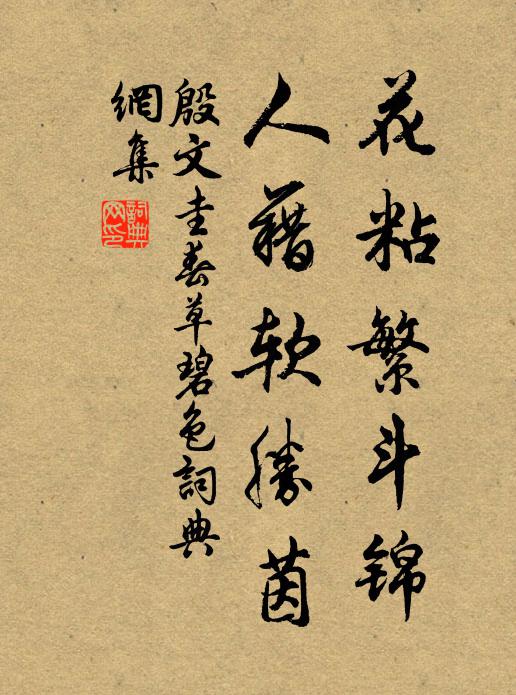 花粘繁斗锦
人藉软勝茵
殷文圭春草碧色詞典
網集
詞典
网印